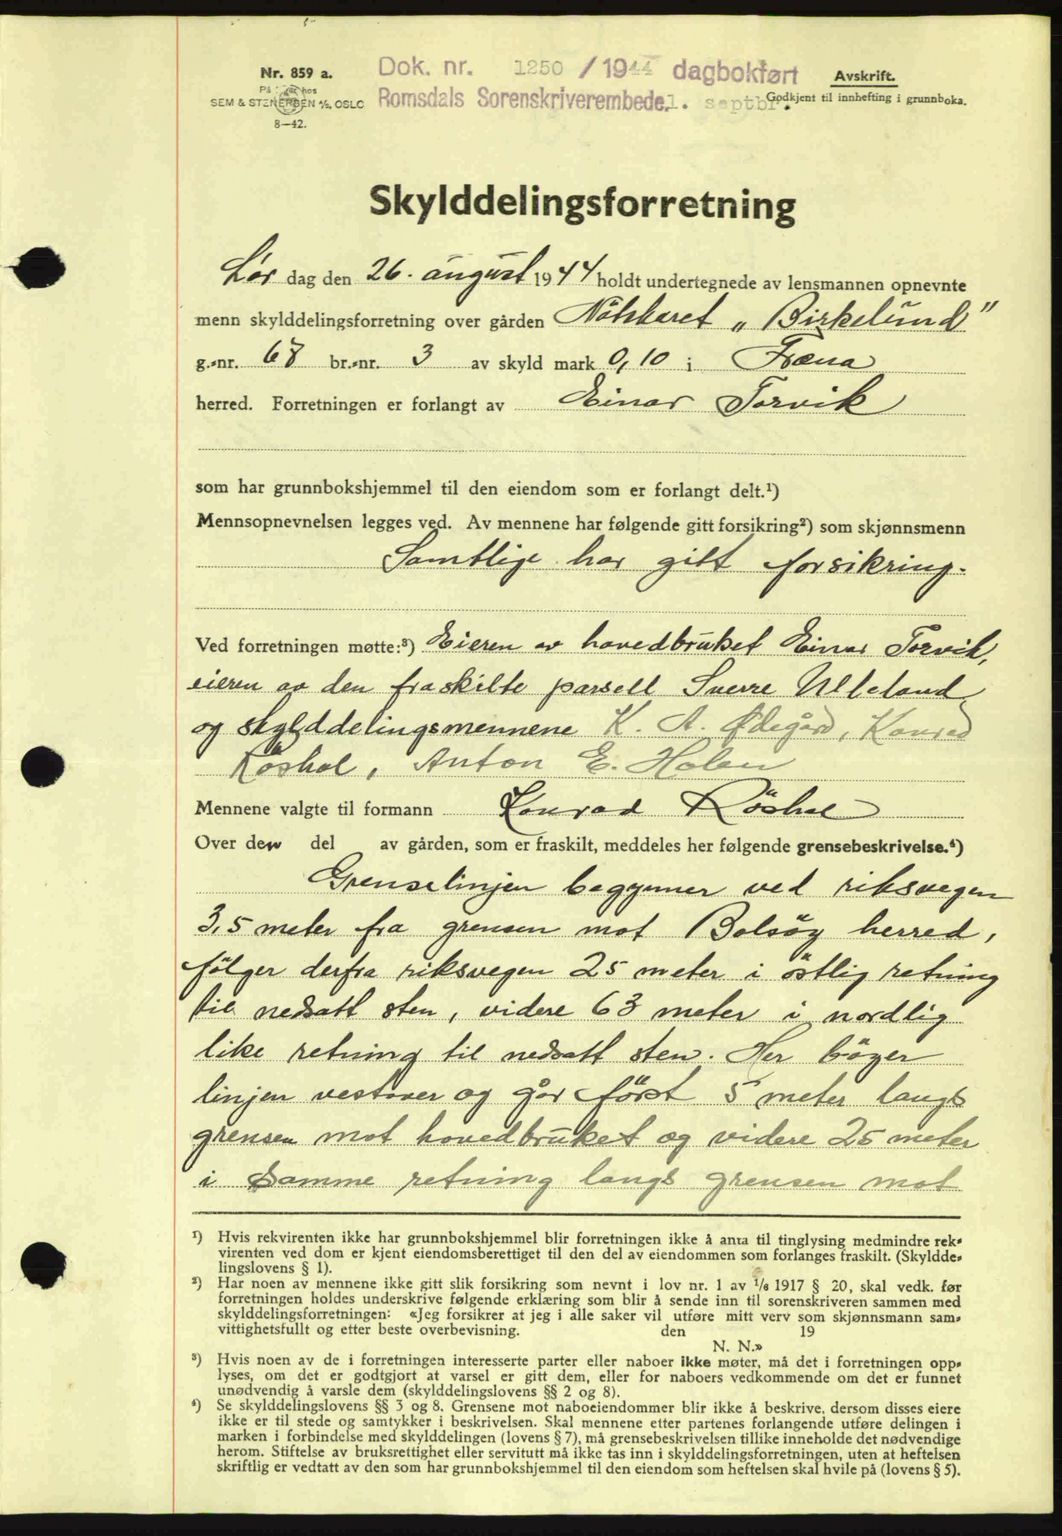 Nr. 859 a.
SEM & STENERSEN A/S, OSLO
8—42.
Dok. nr. 1250 / 1944 dagbokført
Romsdals Sorenskriverembede 1. septbr.
Avskrift.
Godkjent til innhefting i grunnboka.
Skylddelingsforretning
Lør dag den 26. august 1944 holdt undertegnede av lensmannen opnevnte
menn skylddelingsforretning over gården Nåhkaret „Birkelund"
g.-nr. 67 br.-nr. 3 av skyld mark 0,10 i Fræna
herred. Forretningen er forlangt av Einar Torvik
som har grunnbokshjemmel til den eiendom som er forlangt delt.¹)
Mennsopnevnelsen legges ved. Av mennene har følgende gitt forsikring²) som skjønnsmenn
Samtlige har gitt forsikring.
Ved forretningen møtte:³) Eieren av hovedbruket Einar Torvik,
eieren av den fraskilte parsell Sverre Ulleland
og skylddelingsmennene K. A. Ødegård, Konrad
Röshol, Anton E. Holen
Mennene valgte til formann Konrad Röshol
Over den del av gården, som er fraskilt, meddeles her følgende grensebeskrivelse.⁴)
Grenselinjen begynner ved riksvegen
3,5 meter fra grensen mot Bolsöy herred,
fölger derfra riksvegen 25 meter i östlig retning
til nedsatt sten, videre 63 meter i nordlig
like retning til nedsatt sten. Her böyer
linjen vestover og går först 5 meter langs
grensen mot hovedbruket og videre 25 meter
i samme retning langs grensen mot
¹) Hvis rekvirenten ikke har grunnbokshjemmel blir forretningen ikke å anta til tinglysing medmindre rek-
virenten ved dom er kjent eiendomsberettiget til den del av eiendommen som forlanges fraskilt. (Skyldde-
lingslovens § 1).
²) Har noen av mennene ikke gitt slik forsikring som nevnt i lov nr. 1 av 1/6 1917 § 20, skal vedk. før
forretningen holdes underskrive følgende erklæring som blir å sende inn til sorenskriveren sammen med
skylddelingsforretningen: «Jeg forsikrer at jeg i alle saker vil utføre mitt verv som skjønnsmann sam-
vittighetsfullt og etter beste overbevisning. den 19
N. N.»
³) Hvis noen av de i forretningen interesserte parter eller naboer ikke møter, må det i forretningen opp-
lyses, om det er godtgjort at varsel er gitt dem, eller for naboers vedkommende om det er funnet
unødvendig å varsle dem (skylddelingslovens §§ 2 og 8).
⁴) Se skylddelingslovens §§ 3 og 8. Grensene mot naboeiendommer blir ikke å beskrive, dersom disses eiere
ikke er til stede og samtykker i beskrivelsen. Skal mennene etter partenes forlangende utføre delingen i
marken i forbindelse med skylddelingen (lovens § 7), må grensebeskrivelsen tillike inneholde det nødvendige
herom. Stiftelse av bruksrettighet eller servitutt må ikke tas inn i skylddelingsforretningen, uten at heftelsen
skriftlig er vedtatt av den som har grunnbokshjemmel til den eiendom som heftelsen skal hvile på (lovens § 5).